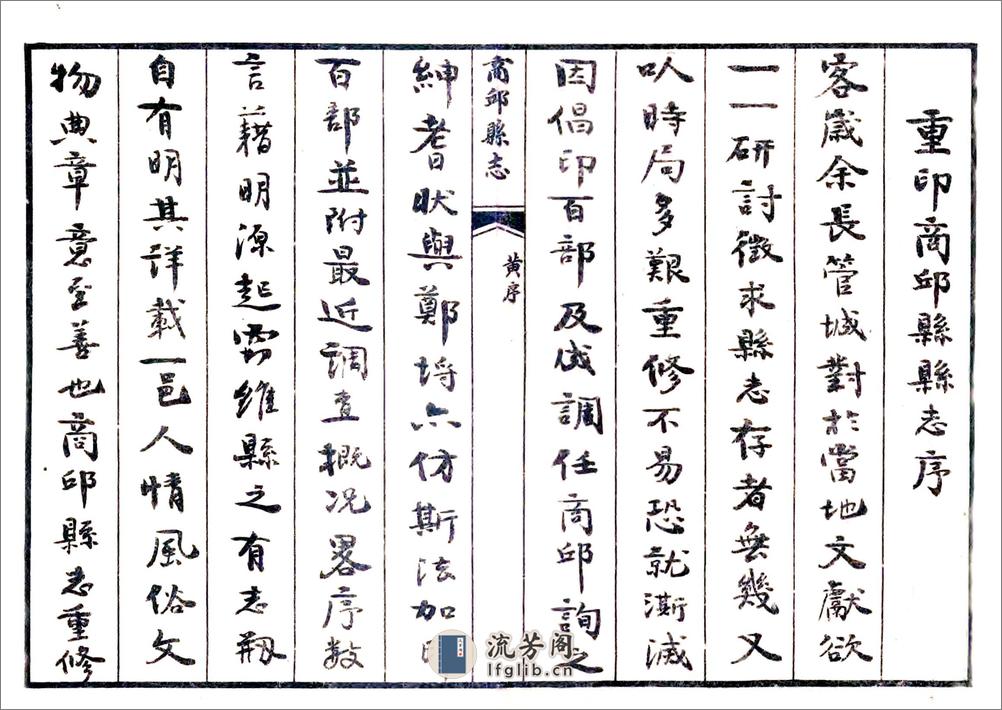 重印商邱縣縣志序
客歲余長管城對於當地文獻欲
一一研討徵求縣志存者無幾又
以時局多艱重修不易恐就澌滅
因倡印百部及調任商邱詢之
商邱縣志
黃序
紳耆狀與鄭埒亦仿斯法加印
百部並附最近調查概況畧序数
言藉明源起竊維縣之有志刱
自有明其詳載一邑人情風俗文
物典章意至善也商邱縣志重修
流芳阁
lfglib.cn